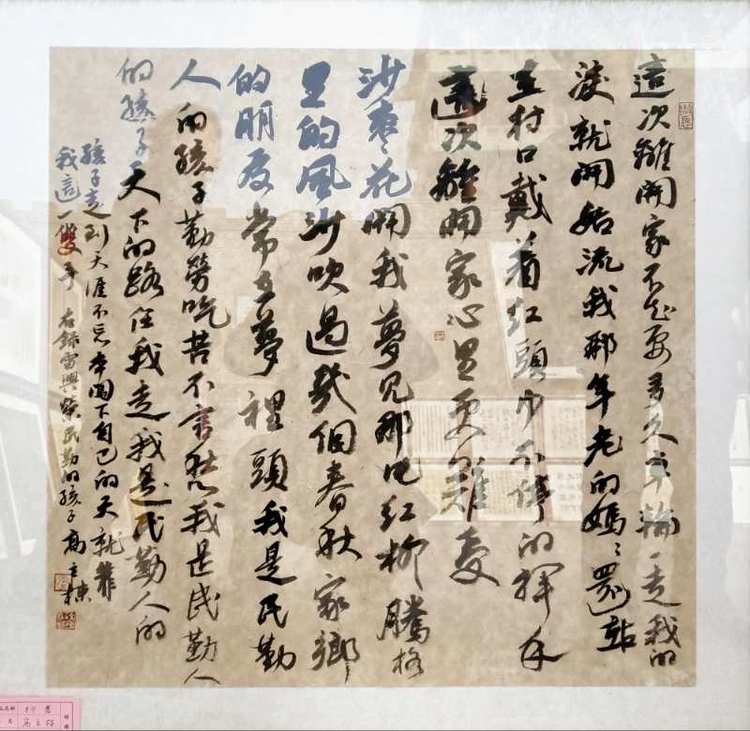 這次離開家不知要多久車輪一走我的
淚就開始流我那年老的媽〻還站
在村口戴着紅頭巾不停的揮手
這次離開家心里更難受
沙棗花開我夢見那片紅柳騰格
里的風沙吹過幾個春秋家鄉
的朋友常在夢裡頭我是民勤
人的孩子勤勞吃苦不言愁我是民勤人
的孩子天下的路任我走我是民勤人的
孩子走到天涯不忘本闖下自己的天就靠
我這一雙手 右錄雷興榮民勤的孩子 高立棟